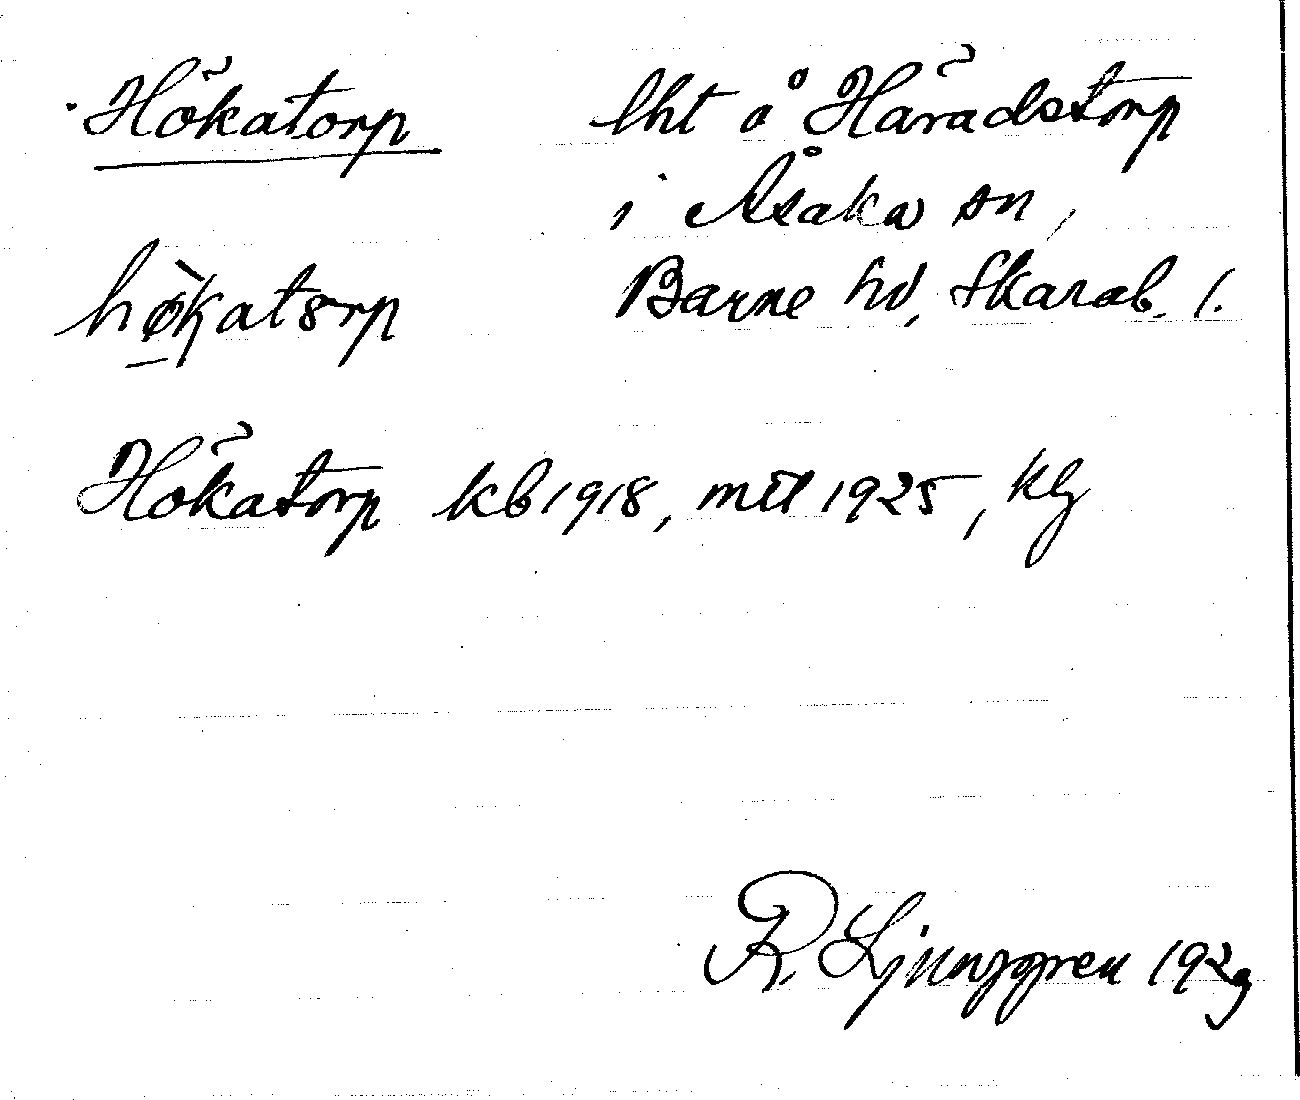 Hökatorp lht å Häradstorp
i Åsaka sn,
hø̀katorp Barne hd, Skarab. l.
Hökatorp kb 1918, mtl 1925, klg
R. Ljunggren 1929